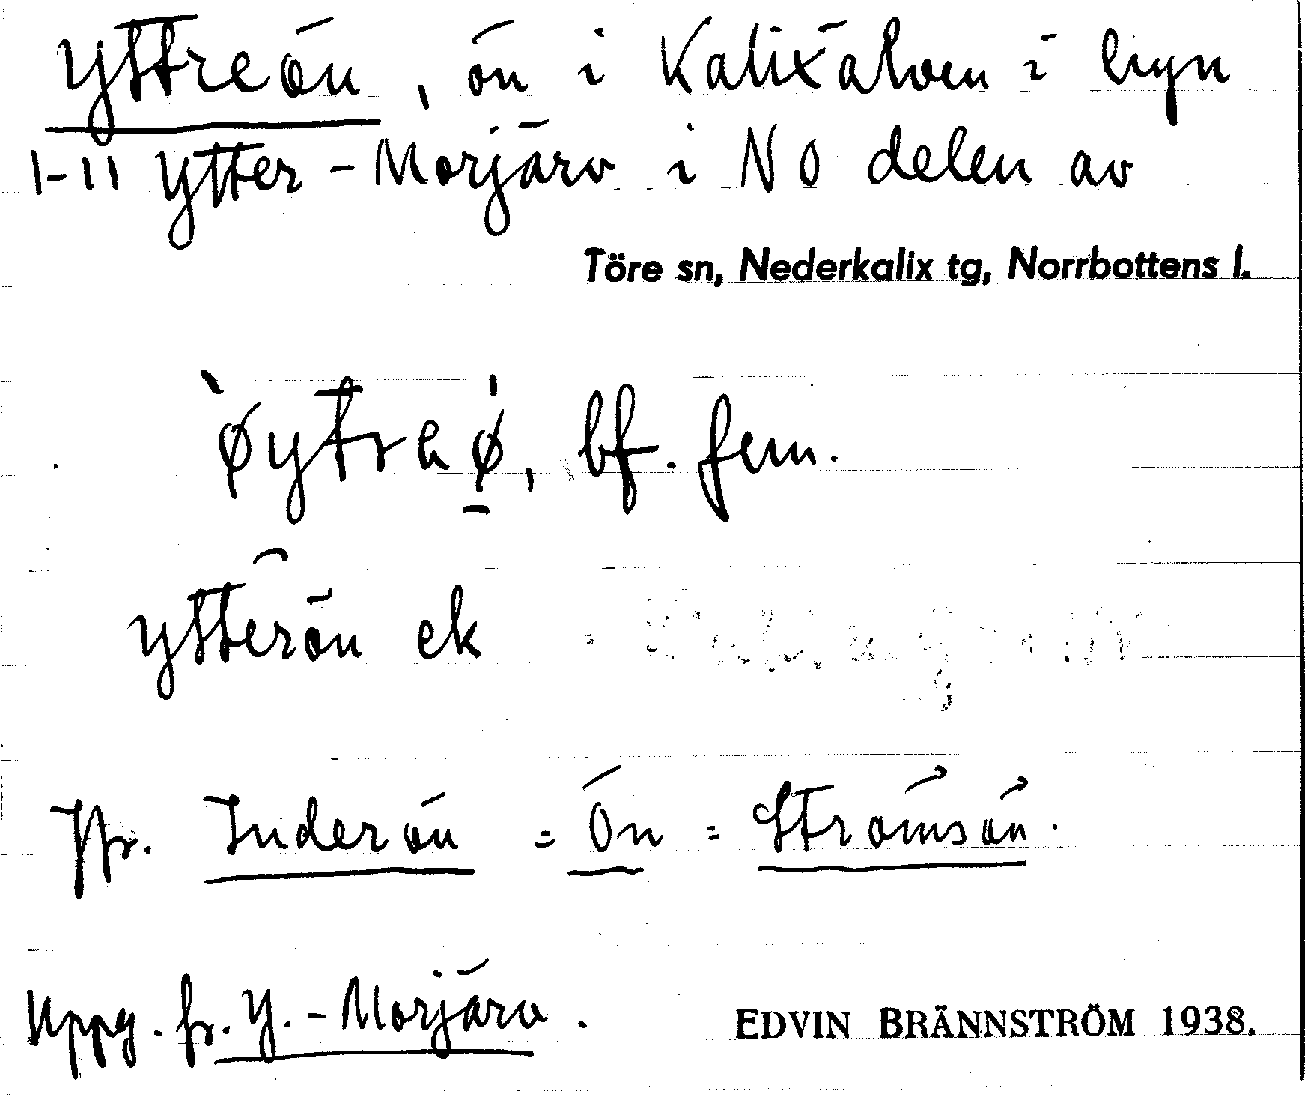 Yttreön, ön i Kalixälven i byn
1-11 Ytter-Morjärv i NO delen av
Töre sn, Nederkalix tg, Norrbottens l.
`øytra ˈø̠, bf. fem.
Ytterön ek
Jfr. Inderön = Ön = Strömsön.
Uppg. fr. Y.-Morjärv.
EDVIN BRÄNNSTRÖM 1938.